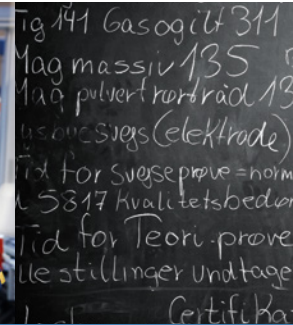 Tig 141 Gasogilt 311
Mag massiv 135
Mag pulvertrørtråd 13
lysbuesvejs (elektrode)
Tid for svejseprøve = norm
5817 Kvalitetsbedøm
Tid for Teori-prøve
lle stillinger undtage
Certifika